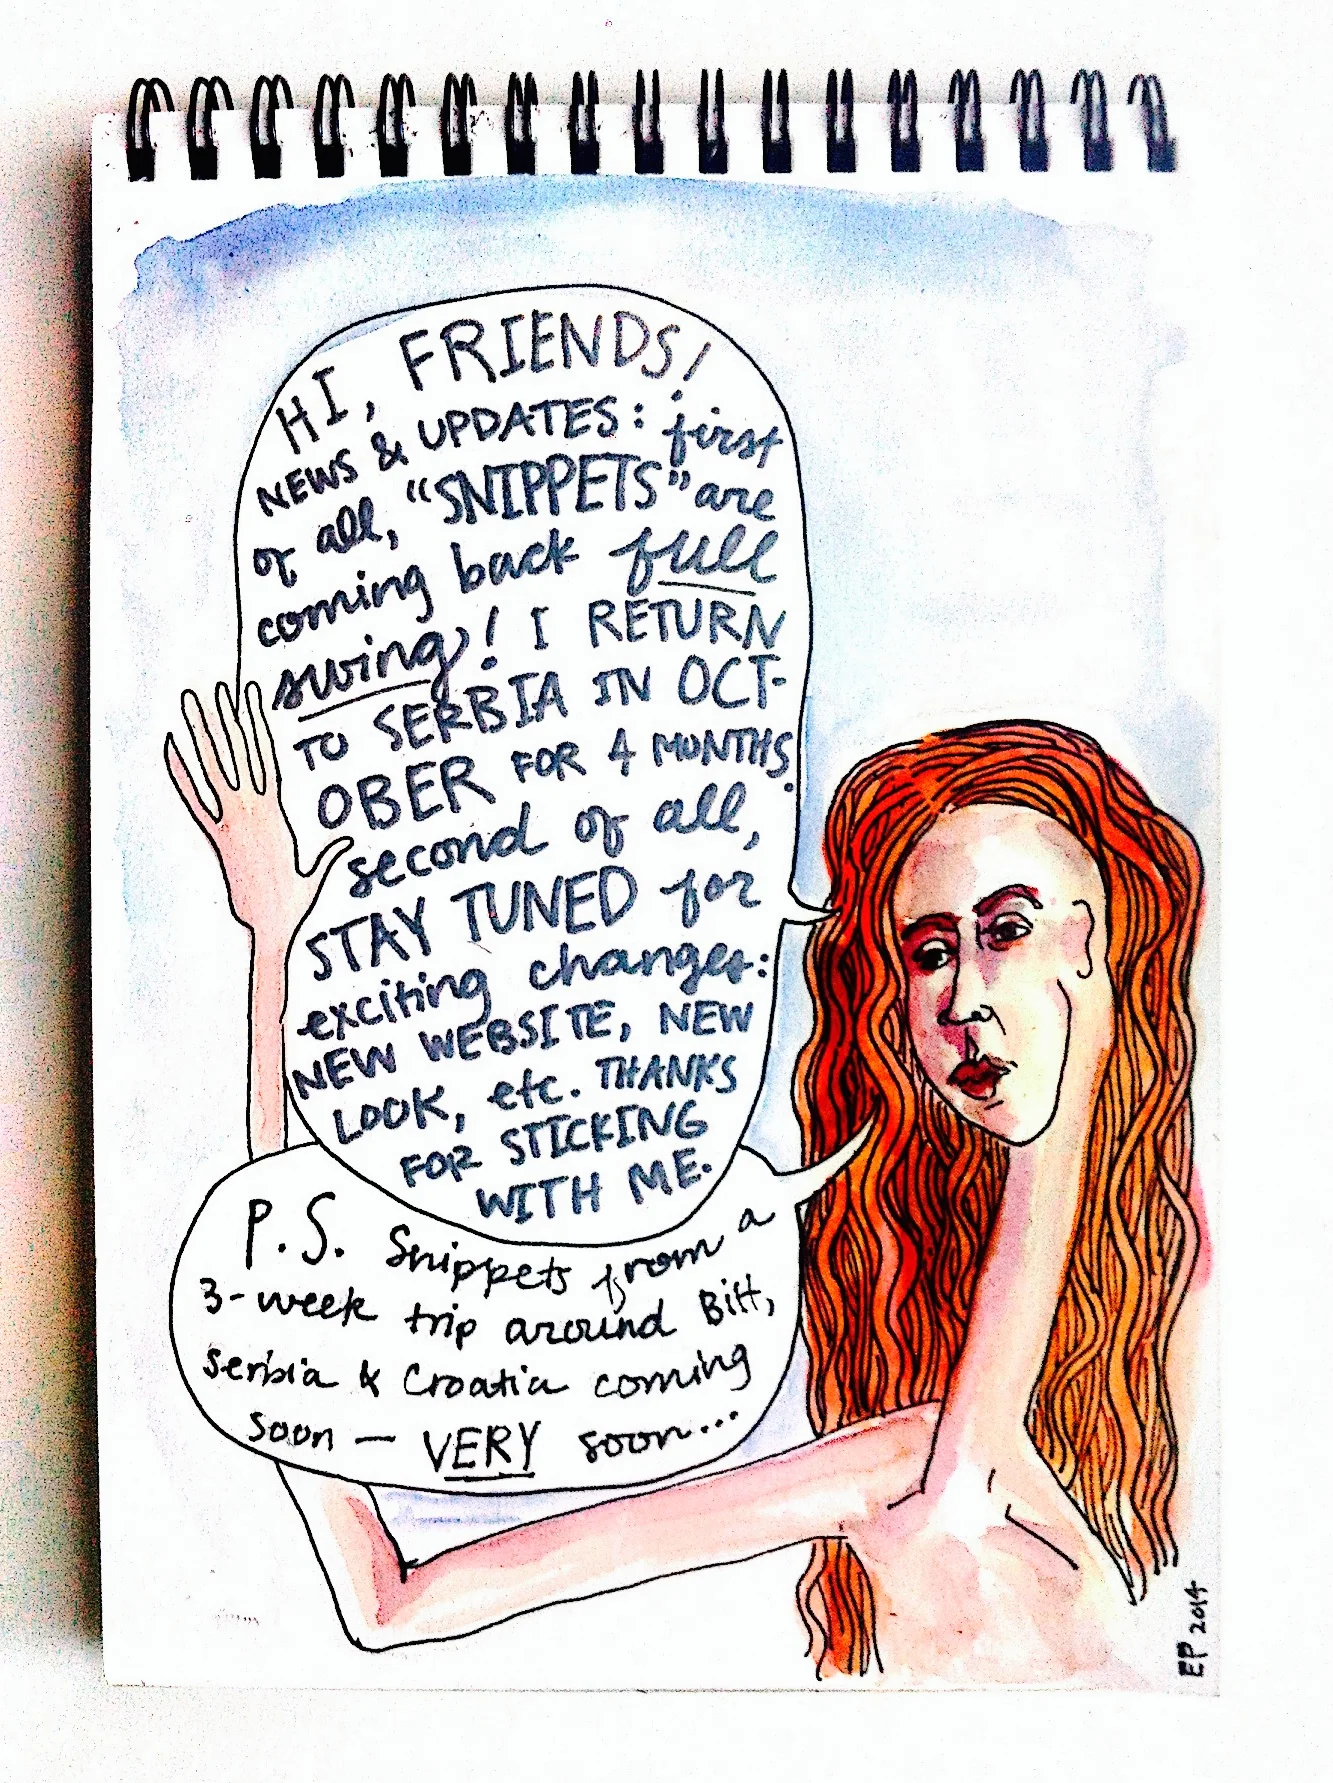 HI, FRIENDS!
NEWS & UPDATES: first
of all, "SNIPPETS" are
coming back full
swing! I RETURN
TO SERBIA IN OCT-
OBER FOR 4 MONTHS.
second of all,
STAY TUNED for
exciting changes:
NEW WEBSITE, NEW
LOOK, etc. THANKS
FOR STICKING
WITH ME.
P.S. Snippets from a
3-week trip around BiH,
Serbia & Croatia coming
soon — VERY soon...
EP 2014